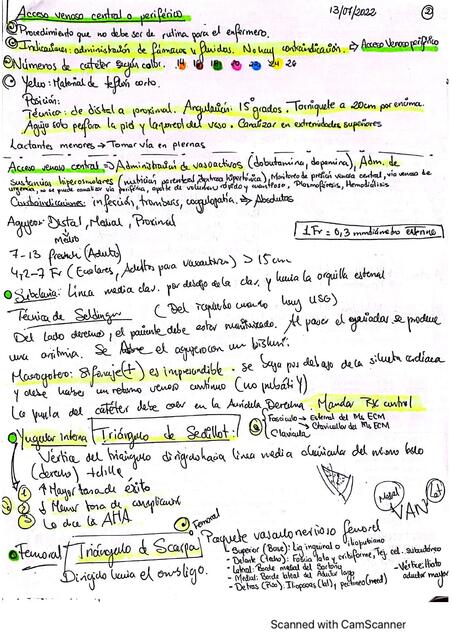 Acceso venoso central o periférico 13/01/2022 2
Procedimiento que no debe ser de rutina para el enfermero.
Indicaciones: administración de fármacos y fluidos. No hay contraindicación. Acceso Venoso periférico
Números de catéter según color. 14 16 18 20 22 24 26
Yelco: Material de teflón corto.
Posición:
Técnica: de distal a proximal. Angulación: 15 grados. Torniquete a 20cm por encima.
Aguja solo perfora la piel y la pared del vaso. Canalizar en extremidades superiores
Lactantes menores → Tomar vía en piernas
Acceso venoso central ⇒ Administración de vasoactivos (dobutamina, dopamina), Adm. de
sustancias hiperosmolares (nutrición parenteral, hipertónica), Monitoreo de presión venosa central, vía venosa de
urgencia, no se puede canalizar vía periférica, aporte de volumen rápido y cuantioso, Plasmaféresis, Hemodiálisis
Contraindicaciones: infección, trombosis, coagulopatía. ⇒ Absolutas
Agujero: Distal, Medial, Proximal
Medio
1 Fr = 0,3 mm diámetro externo
7-13 French (Adultos)
4,2-7 Fr (Escolares, Adultos para vasoactivos) > 15cm
Subclavia: Línea media clav. por debajo de la clav. y hacia la orquilla esternal
Técnica de Seldinger (Del izquierdo cuando hay USG)
Del lado derecho, el paciente debe estar monitorizado. Al pasar el guiador se produce
una arritmia. Se abre el agujero con un bisturí.
Macrogotero: Si forraje (+) es imprescindible. se baja por debajo de la silueta cardíaca
y debe haber un retorno venoso continuo (no pulsátil)
La punta del catéter debe caer en la Aurícula Derecha. Mandar RX control
Yugular interna Triángulo de Sedillot: Fascículo → Esternal del M. ECM
→ Clavicular del M. ECM
Clavícula
Vértice del triángulo dirigido hacia línea media clavicular del mismo lado
(derecho) tetilla
1 ↑ Mayor tasa de éxito
2 ↓ Menor tasa de complicación
3 Lo dice la AHA
Medial Lat
VAN
Femoral
Femoral Triángulo de Scarpa Paquete vasculonervioso femoral
Dirigido hacia el ombligo.
- Superior (Base): Lig inguinal o iliopubiano
- Delante (Techo): Fascia lata y cribiforme, Tej. cel. subcutáneo
- Lateral: Borde medial del Sartorio
- Medial: Borde lateral del Aductor largo
- Detras (Piso): Iliopsoas (lat), pectíneo (med)
- Vértice: Hiato
aductor mayor
Scanned with CamScanner